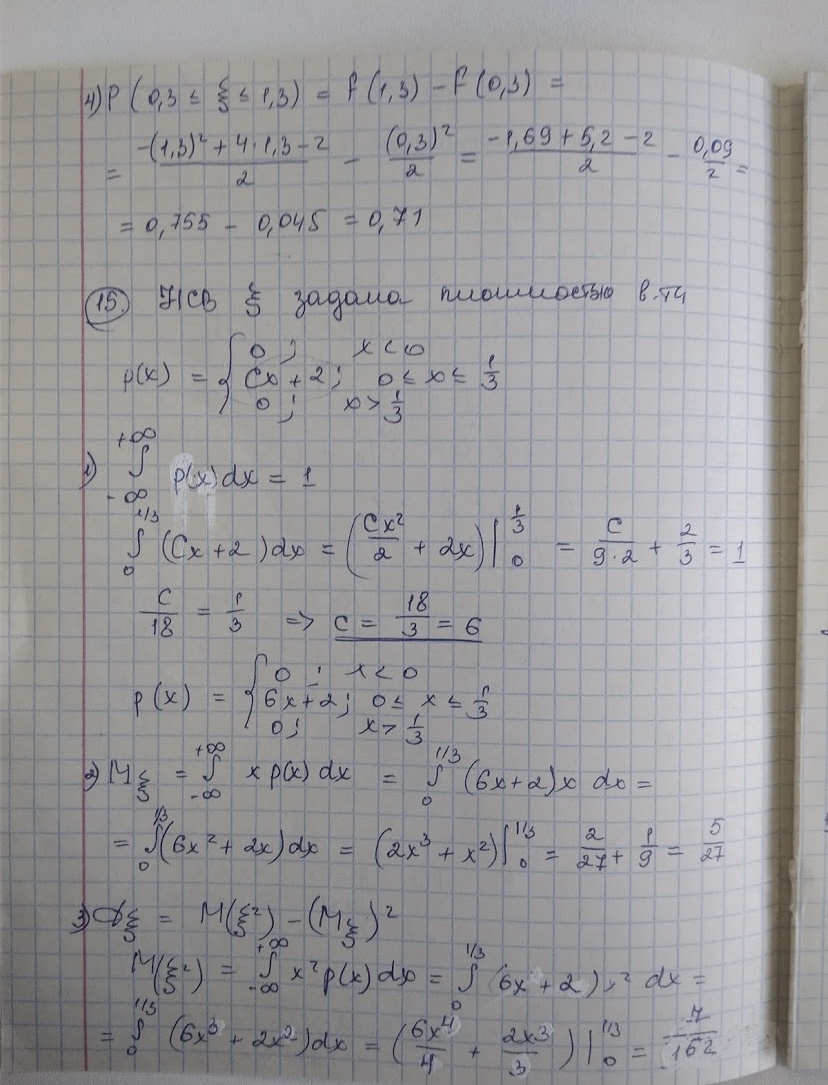 4) P (0,3 ≤ ξ ≤ 1,3) = F(1,3) − F(0,3) =
= (−(1,3)² + 4·1,3 − 2)/2 − (0,3)²/2 = (−1,69 + 5,2 − 2)/2 − 0,09/2 =
= 0,755 − 0,045 = 0,71
15. НСВ ξ задана плотностью в-ти
p(x) = { 0; x < 0
Cx + 2; 0 ≤ x ≤ 1/3
0; x > 1/3
1) ∫_{-∞}^{+∞} p(x)dx = 1
∫_0^{1/3} (Cx + 2)dx = (Cx²/2 + 2x)|_0^{1/3} = C/(9·2) + 2/3 = 1
C/18 = 1/3 => C = 18/3 = 6
p(x) = { 0; x < 0
6x + 2; 0 ≤ x ≤ 1/3
0; x > 1/3
2) Mξ = ∫_{-∞}^{+∞} x p(x) dx = ∫_0^{1/3} (6x + 2)x dx =
= ∫_0^{1/3} (6x² + 2x)dx = (2x³ + x²)|_0^{1/3} = 2/27 + 1/9 = 5/27
3) Dξ = M(ξ²) − (Mξ)²
M(ξ²) = ∫_{-∞}^{+∞} x² p(x) dx = ∫_0^{1/3} (6x + 2) x² dx =
= ∫_0^{1/3} (6x³ + 2x²)dx = (6x⁴/4 + 2x³/3)|_0^{1/3} = 7/162